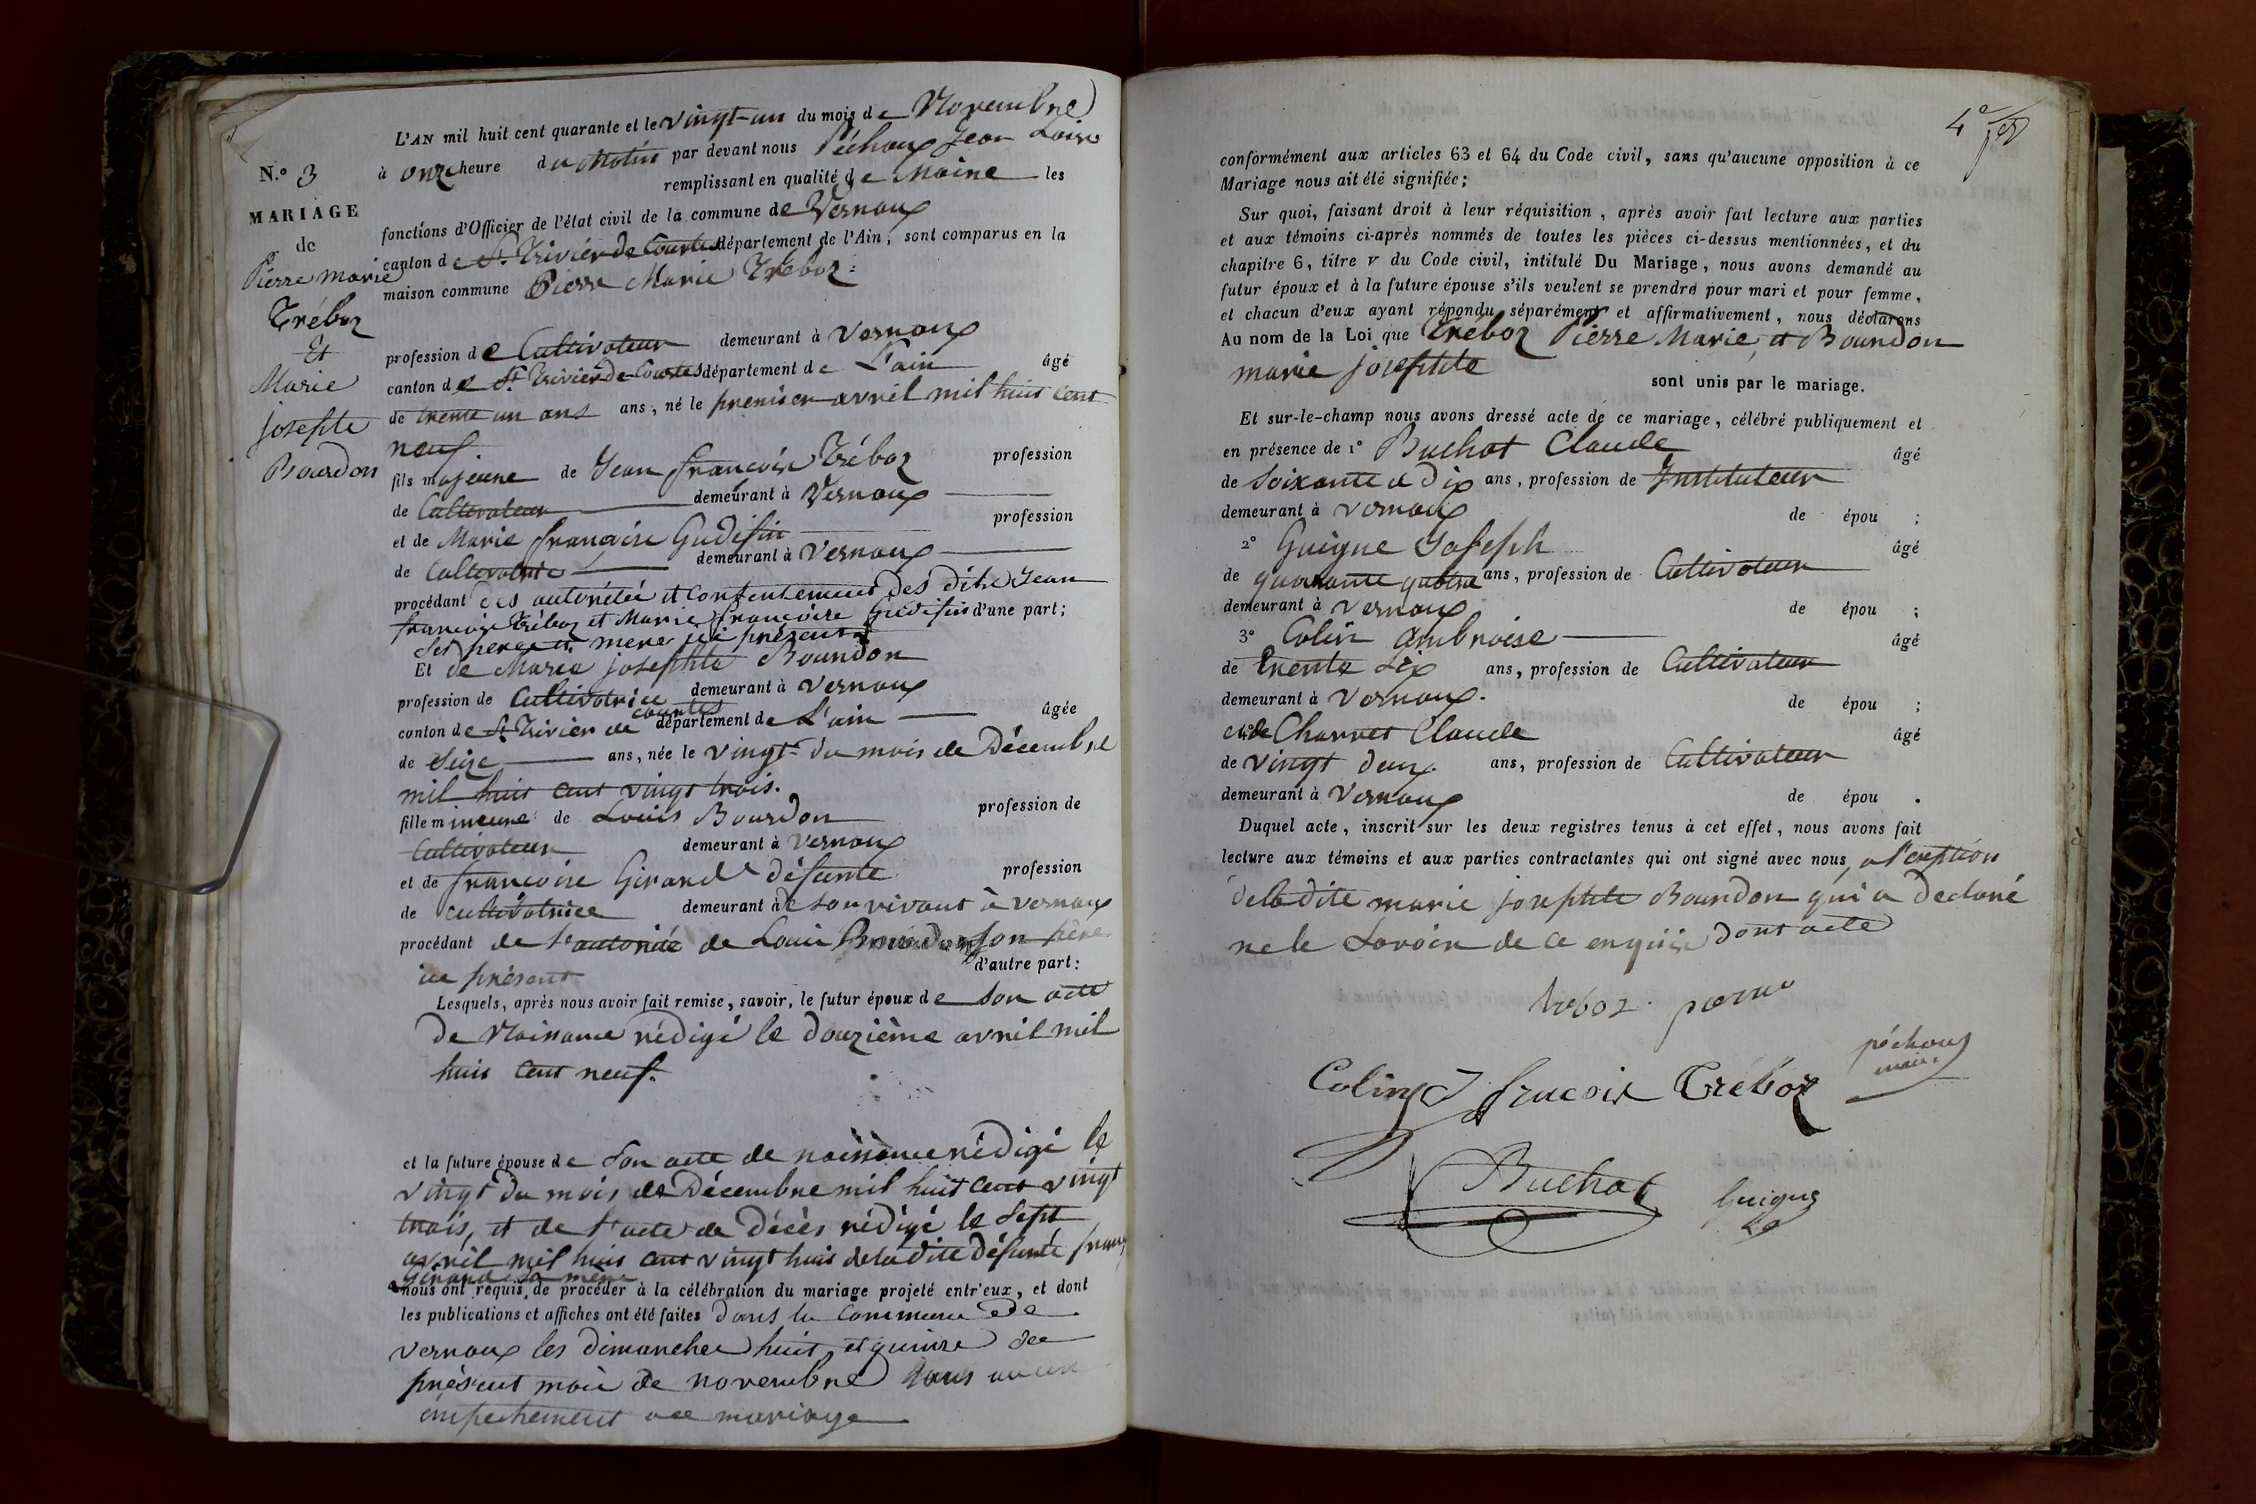 N.º 3
MARIAGE
de
Pierre Marie
Tréboz
Et
Marie
josephte
Bourdon
L'AN mil huit cent quarante et le vingt-un du mois de Novembre
à onze heure du Matin par devant nous Péchoux Jean
remplissant en qualité de Maire les
fonctions d'Officier de l'état civil de la commune de Vernoux
canton de St. Trivier de Courtes département de l'Ain, sont comparus en la
maison commune Pierre Marie Tréboz
profession de Cultivateur demeurant à Vernoux
canton de St. Trivier de Courtes département de L'ain âgé
de trente un ans ans, né le premier avril mil huit cent
neuf
fils majeure de Jean françois Tréboz profession
de Cultivateur demeurant à Vernoux
et de Marie françoise Gudefin profession
de Cultivatrice demeurant à Vernoux
procédant des autorités et consentement des dits Jean
françois Tréboz et Marie françoise Gudefin d'une part;
ses père et mere ici présents
Et de Marie josephte Bourdon
profession de Cultivatrice demeurant à Vernoux
canton de St. Trivier de Courtes département de L'ain âgée
de Seize ans, née le vingt du mois de Décembre
mil huit cent vingt trois.
fille mineure de Louis Bourdon profession de
Cultivateur demeurant à Vernoux
et de françoise Girard défunte profession
de cultivatrice demeurant à de son vivant à Vernoux
procédant de l'autorité de Louis Bourdon son père
ici présent d'autre part:
Lesquels, après nous avoir fait remise, savoir, le futur époux de son acte
de Naissance rédigé le douzième avril mil
huit cent neuf.
et la future épouse de son acte de naissance rédigé le
vingt du mois de Décembre mil huit cent vingt
trois, et de l'acte de Décès rédigé le sept
avril mil huit cent vingt huit de la dite défunte
Girard sa mère
nous ont requis de procéder à la célébration du mariage projeté entr'eux, et dont
les publications et affiches ont été faites dans la commune de
Vernoux les dimanches huit et quinze du
présent mois de novembre sans aucun
empechement a ce mariage
4e
conformément aux articles 63 et 64 du Code civil, sans qu'aucune opposition à ce
Mariage nous ait été signifiée;
Sur quoi, faisant droit à leur réquisition, après avoir fait lecture aux parties
et aux témoins ci-après nommés de toutes les pièces ci-dessus mentionnées, et du
chapitre 6, titre v du Code civil, intitulé Du Mariage, nous avons demandé au
futur époux et à la future épouse s'ils veulent se prendre pour mari et pour femme,
et chacun d'eux ayant répondu séparément et affirmativement, nous déclarons
Au nom de la Loi que Tréboz Pierre Marie, et Bourdon
marie josephte
sont unis par le mariage.
Et sur-le-champ nous avons dressé acte de ce mariage, célébré publiquement et
en présence de 1º Buchot Claude âgé
de Soixante et dix ans, profession de Instituteur
demeurant à Vernoux de épou ;
2º Guigue Joseph âgé
de quarante quatre ans, profession de Cultivateur
demeurant à Vernoux de épou ;
3º Colin Ambroise âgé
de trente six ans, profession de Cultivateur
demeurant à Vernoux. de épou ;
et de Charvet Claude âgé
de vingt deux ans, profession de Cultivateur
demeurant à Vernoux de épou .
Duquel acte, inscrit sur les deux registres tenus à cet effet, nous avons fait
lecture aux témoins et aux parties contractantes qui ont signé avec nous, a l'exeption
de la dite marie josephte Bourdon qui a declaré
ne le Savoir de ce enquise dont acte
treboz pierre
péchoux
maire
Colin françois Tréboz
Buchot
Guigue